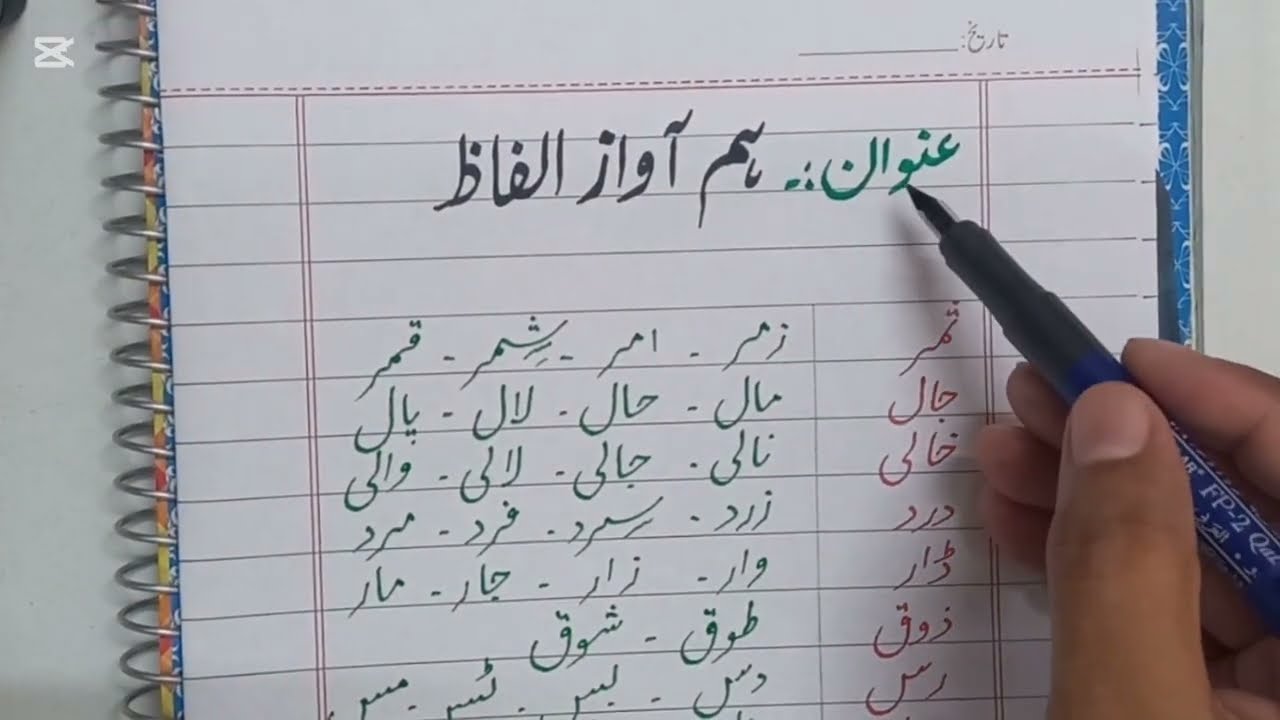 تاریخ:
عنوان:۔ ہم آواز الفاظ
ثمر زمر ۔ امر ۔ شِمر ۔ قمر
جال مال ۔ حال ۔ لال ۔ پال
خالی نالی ۔ جالی ۔ لالی ۔ والی
درد زرد ۔ سرد ۔ فرد ۔ مرد
ڈار وار ۔ زار ۔ جار ۔ مار
ذوق طوق ۔ شوق
رس دس ۔ بس ۔ ٹس ۔ مس
FP-2 Qal